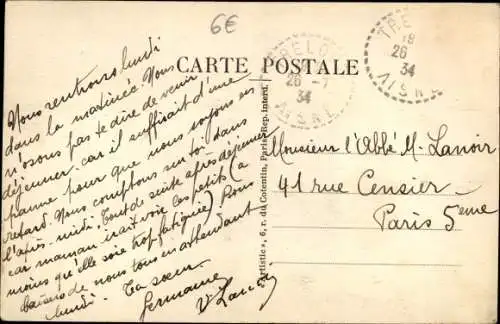 6€
CARTE POSTALE
TRE
18
26
34
AISNE
TRELOU
26 -7
34
AISNE
Nous rentrons lundi
dans la matinée. Nous
n'osons pas te dire de venir
déjeuner car il suffirait d'une
panne pour que nous soyons en
retard. Nous comptons sur toi dans
l'après-midi. Tout de suite après déjeuner
car maman irait voir les petits (à
moins qu'elle soit trop fatiguée) Bons
baisers de nous tous en attendant
lundi. Ta sœur
Germaine
Artistic s, 6, r. du Cotentin, Paris Rep. Interd.
Monsieur l'Abbé M. Lanoir
41 rue Censier
Paris 5eme